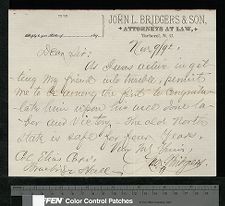 JOHN L. BRIDGERS & SON,
ATTORNEYS AT LAW,
Tarboro, N. C.
Nov 9/92
Dear Sir:
As I was active in get
ting my friend into trouble, permit
me to be among the first to congratu-
late him upon his well done la-
bor and victory. The old North
State is safe for four years.
Very truly yours
Jno. L. Bridgers
Col Elias Carr
Color Control Patches